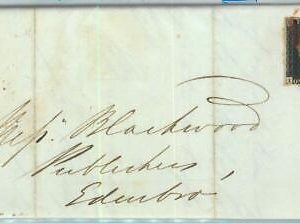 Messrs Blackwood
Publishers,
Edenbro